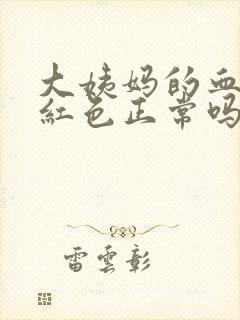 大姨妈的血
红色正常吗
雷雲彰